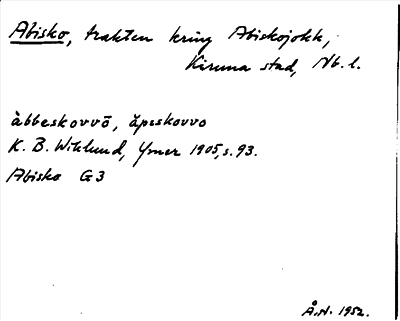 Abisko, trakten kring Abiskojokk,
Kiruna stad, Nb. l.
àbbeskovvō, ăpeskovvo
K. B. Wiklund, Ymer 1905, s. 93.
Abisko G3
Å.N. 1952.